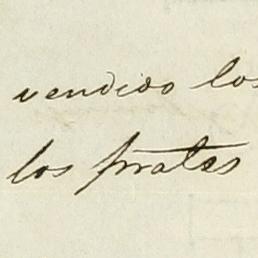 vendido los
los pratas